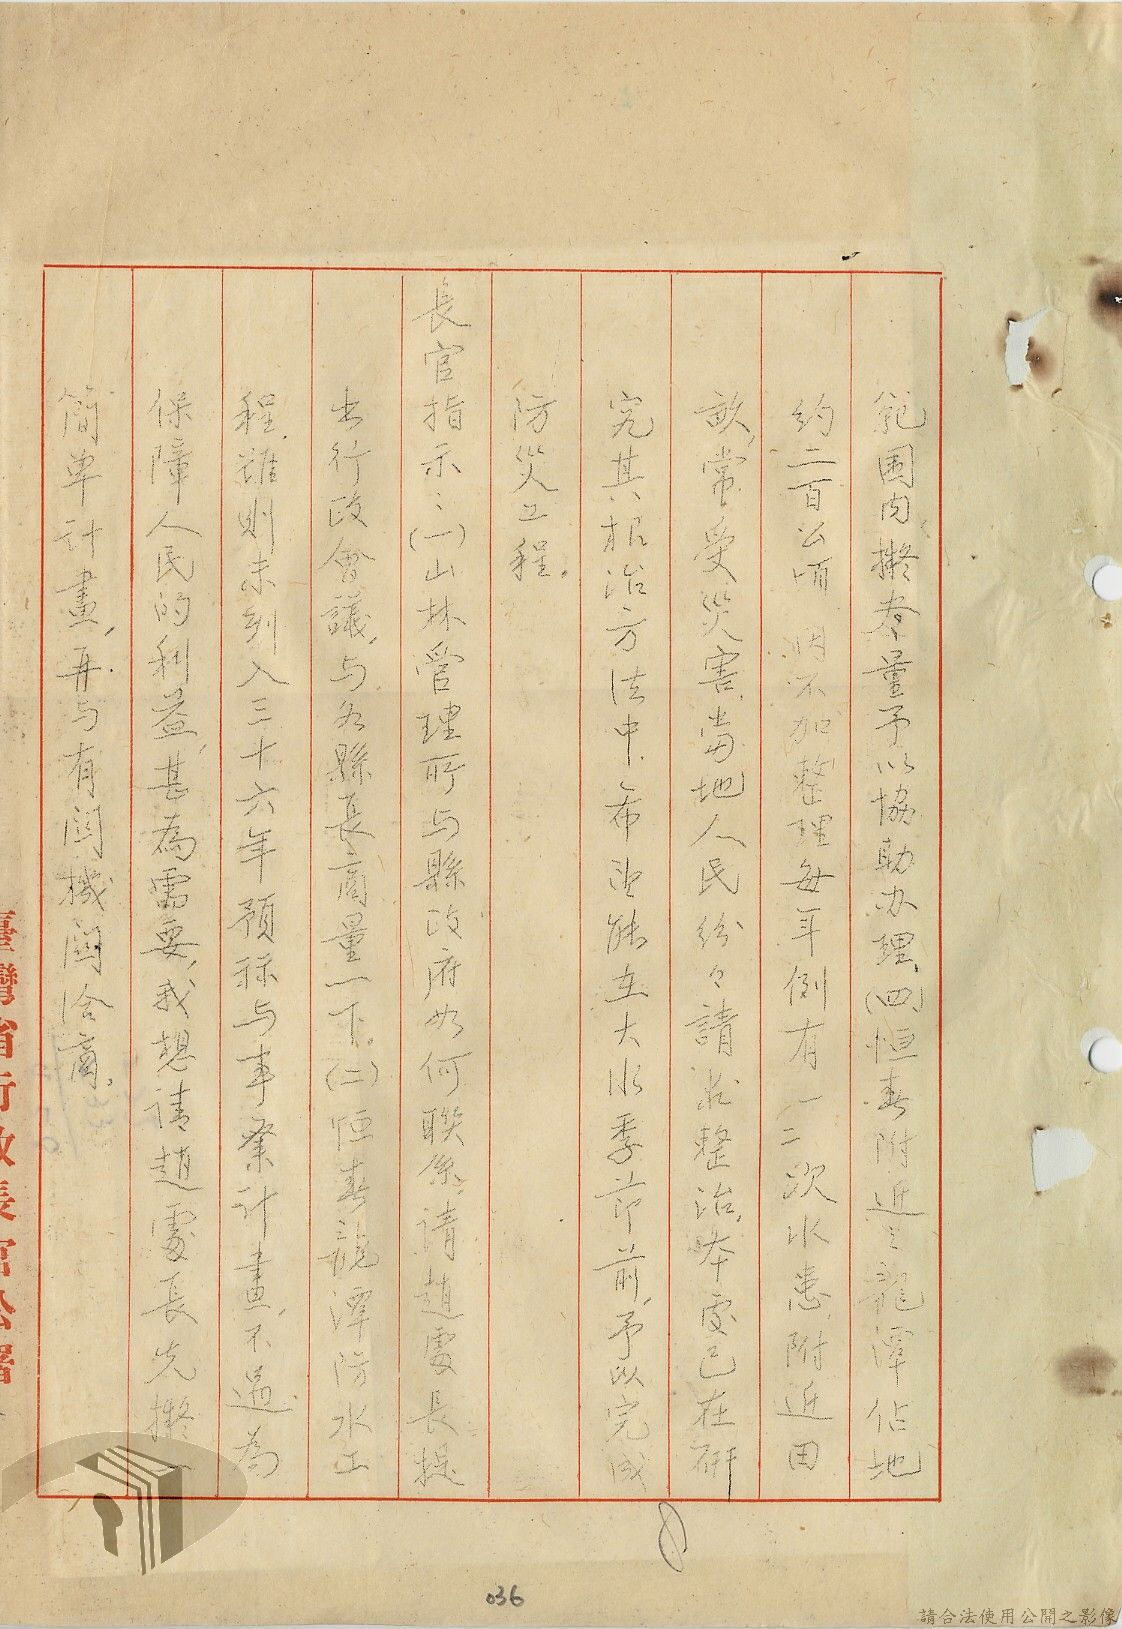 範围内,擬尽量予以協助办理,(四)恒春附近之龍潭佔地
約二百公頃 因不加整理每年例有一二次水患,附近田
畝,常受災害,當地人民纷々請求整治,本處已在研
究其根治方法中,希望能在大水季节前,予以完成
防災工程。
長官指示:(一)山林管理所与縣政府如何聯係,請趙處長提
出行政會議,与各縣長商量一下。(二)恒春龍潭防水工
程,雖則未列入三十六年預算与事業計畫,不過為
保障人民的利益,甚為需要,我想請趙處長先擬一
簡单計畫,再与有関機関洽商。
臺灣省行政長官公署
036
請合法使用公開之影像